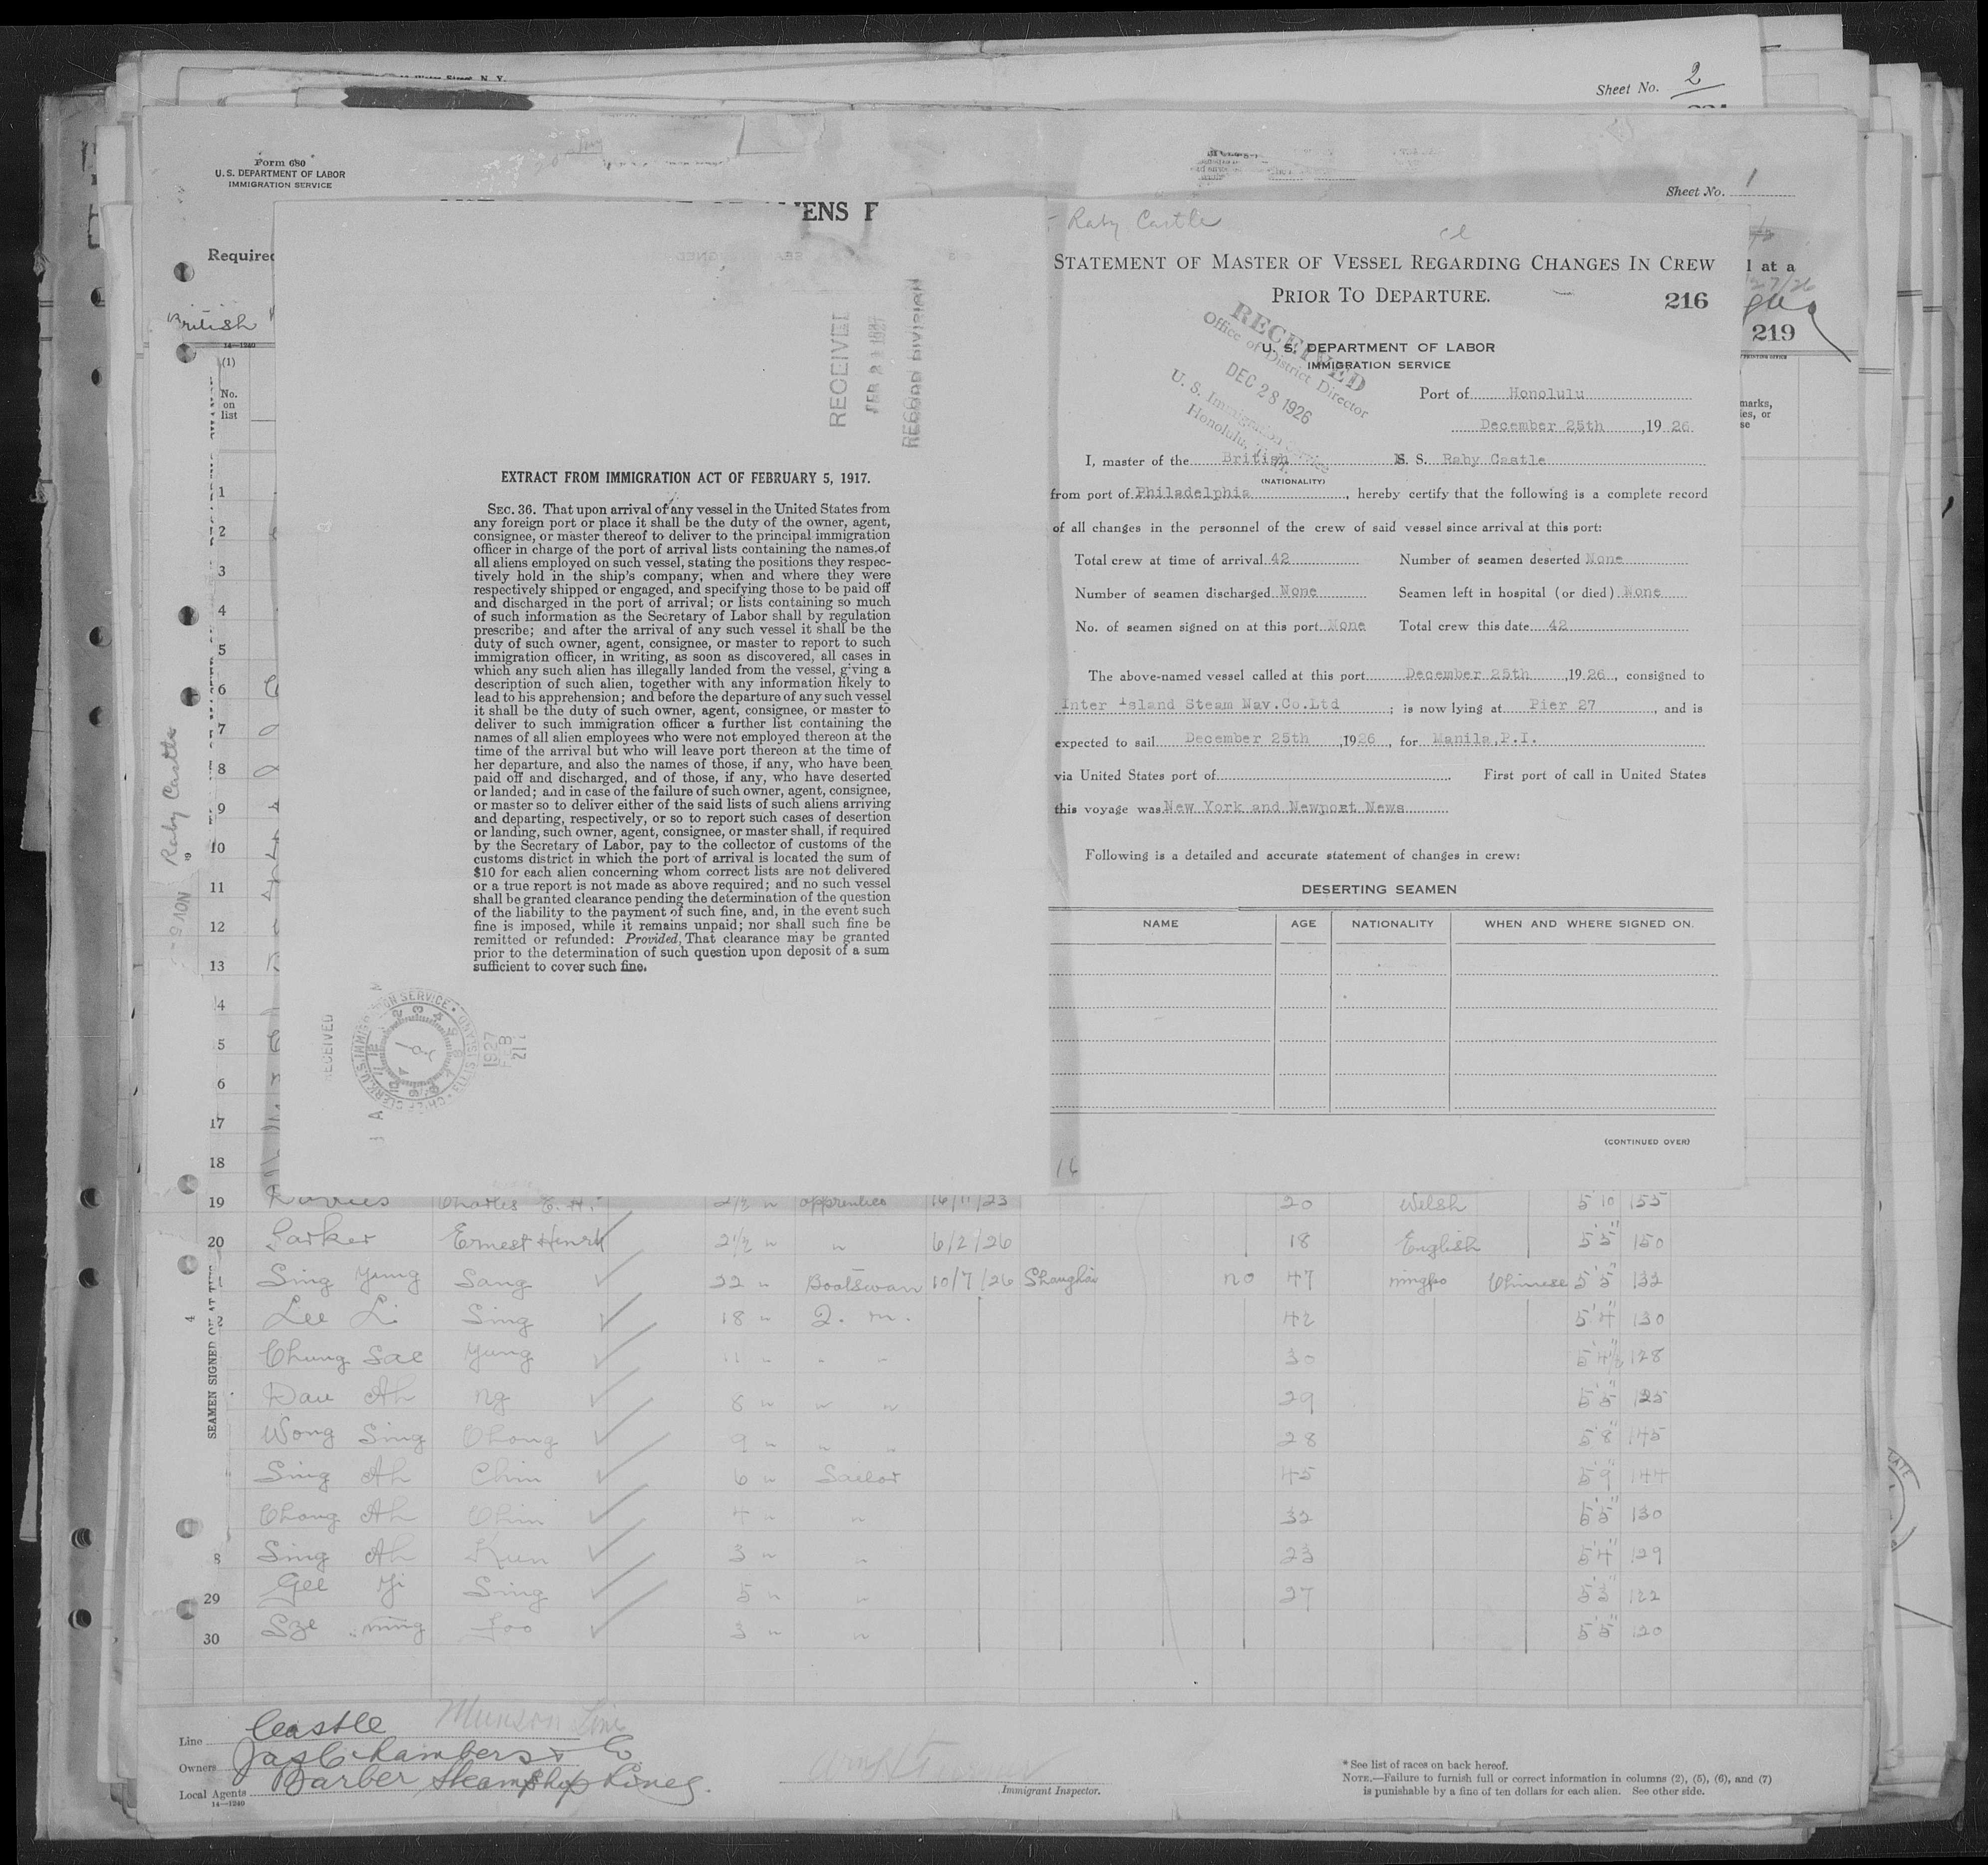 Sheet No. 2
Form 680
U. S. DEPARTMENT OF LABOR
IMMIGRATION SERVICE
Sheet No. 1
Required
British
14—1240
(1)
No.
on
list
ENS F
RECEIVED
RECORD DIVISION
EXTRACT FROM IMMIGRATION ACT OF FEBRUARY 5, 1917.
SEC. 36. That upon arrival of any vessel in the United States from
any foreign port or place it shall be the duty of the owner, agent,
consignee, or master thereof to deliver to the principal immigration
officer in charge of the port of arrival lists containing the names of
all aliens employed on such vessel, stating the positions they respec-
tively hold in the ship's company, when and where they were
respectively shipped or engaged, and specifying those to be paid off
and discharged in the port of arrival; or lists containing so much
of such information as the Secretary of Labor shall by regulation
prescribe; and after the arrival of any such vessel it shall be the
duty of such owner, agent, consignee, or master to report to such
immigration officer, in writing, as soon as discovered, all cases in
which any such alien has illegally landed from the vessel, giving a
description of such alien, together with any information likely to
lead to his apprehension; and before the departure of any such vessel
it shall be the duty of such owner, agent, consignee, or master to
deliver to such immigration officer a further list containing the
names of all alien employees who were not employed thereon at the
time of the arrival but who will leave port thereon at the time of
her departure, and also the names of those, if any, who have been
paid off and discharged, and of those, if any, who have deserted
or landed; and in case of the failure of such owner, agent, consignee,
or master so to deliver either of the said lists of such aliens arriving
and departing, respectively, or so to report such cases of desertion
or landing, such owner, agent, consignee, or master shall, if required
by the Secretary of Labor, pay to the collector of customs of the
customs district in which the port of arrival is located the sum of
$10 for each alien concerning whom correct lists are not delivered
or a true report is not made as above required; and no such vessel
shall be granted clearance pending the determination of the question
of the liability to the payment of such fine, and, in the event such
fine is imposed, while it remains unpaid; nor shall such fine be
remitted or refunded: Provided, That clearance may be granted
prior to the determination of such question upon deposit of a sum
sufficient to cover such fine.
RECEIVED
1927
FEB
21
Raby Castle
STATEMENT OF MASTER OF VESSEL REGARDING CHANGES IN CREW
PRIOR TO DEPARTURE.
216
RECEIVED
Office of District Director
DEC 28 1926
U. S. Immigration Service
Honolulu,
U. S. DEPARTMENT OF LABOR
IMMIGRATION SERVICE
Port of Honolulu
December 25th, 19 26
I, master of the British S. S. Raby Castle
(NATIONALITY)
from port of Philadelphia, hereby certify that the following is a complete record
of all changes in the personnel of the crew of said vessel since arrival at this port:
Total crew at time of arrival 42 Number of seamen deserted None
Number of seamen discharged None Seamen left in hospital (or died) None
No. of seamen signed on at this port None Total crew this date 42
The above-named vessel called at this port December 25th, 19 26, consigned to
Inter Island Steam Nav.Co.Ltd; is now lying at Pier 27, and is
expected to sail December 25th, 19 26, for Manila,P.I.
via United States port of. First port of call in United States
this voyage was New York and Newport News
Following is a detailed and accurate statement of changes in crew:
DESERTING SEAMEN
NAME AGE NATIONALITY WHEN AND WHERE SIGNED ON.
(CONTINUED OVER)
16
l at a
219
marks,
es, or
se
Raby Castle
SEAMEN SIGNED ON AT
1
2
3
4
5
6
7
8
9
10
11
12
13
4
5
6
17
18
19 Charles E. H. 2½ " apprentice 16/11/23 20 Welsh 5 10 155
20 Parker Ernest Henry 2½ " " 6/2/26 18 English 5 5" 150
Sing Yung Sang 22 " Boatswan 10/7/26 Shanghai no 47 ningpo Chinese 5 5" 132
Lee Li Sing 18 " Q. m. 42 5 4" 130
Chung Sae Yung 11 " " " 30 5 4½ 128
Dau Ah ng 8 " " " 29 5 5" 125
Wong Sing Chong 9 " " " 28 5 8" 145
Sing Ah Chin 6 " Sailor 45 5 9" 144
Chong Ah Chin 4 " " 32 5 5" 130
8 Sing Ah Kun 3 " " 23 5 4" 129
29 Gee Yi Sing 5 " " 27 5 3" 122
30 Sze ning Foo 3 " " 5 5" 120
Line Castle Munson Line
Owners Jas Chambers & Co
Local Agents Barber Steamship Lines.
14—1240
Immigrant Inspector.
* See list of races on back hereof.
NOTE.—Failure to furnish full or correct information in columns (2), (5), (6), and (7)
is punishable by a fine of ten dollars for each alien. See other side.